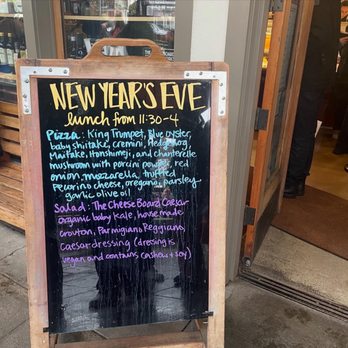 NEW YEAR'S EVE
lunch from 11:30-4
Pizza: King Trumpet, Blue oyster,
baby shiitake, cremini, Hedgehog,
Maitake, Honshimeji, and chanterelle
mushroom with porcini powder, red
onion, mozzarella, truffled
Pecorino cheese, oregano, parsley
garlic olive oil
Salad: The Cheese Board Caesar
organic baby kale, house made
crouton, Parmigiano Reggiano,
caesar dressing (dressing is
vegan and contains cashew + soy)